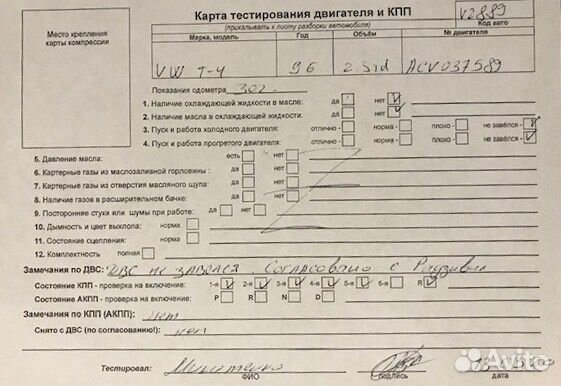 Карта тестирования двигателя и КПП
(прикалывать к листу разборки автомобиля)
V2889
Код авто
Место крепления
карты компрессии
Марка, модель Год Объём № двигателя
VW T-4 96 2.5td ACV037589
Показания одометра 302
1. Наличие охлаждающей жидкости в масле: да нет
2. Наличие масла в охлаждающей жидкости: да нет
3. Пуск и работа холодного двигателя: отлично - норма - плохо - не завёлся -
4. Пуск и работа прогретого двигателя: отлично - норма - плохо - не завёлся -
5. Давление масла: есть нет
6. Картерные газы из маслозаливной горловины: да нет
7. Картерные газы из отверстия масляного щупа: да нет
8. Наличие газов в расширительном бачке: да нет
9. Посторонние стуки или шумы при работе: да нет
10. Дымность и цвет выхлопа: норма
11. Состояние сцепления: норма
12. Комплектность полная
Замечания по ДВС: ДВС не завелся. Согласовано с
Состояние КПП - проверка на включение: 1-я 2-я 3-я 4-я 5-я 6-я R
Состояние АКПП - проверка на включение: P R N D
Замечания по КПП (АКПП): нет
Снято с ДВС (по согласованию!):
Тестировал:
ФИО подпись дата
Avito